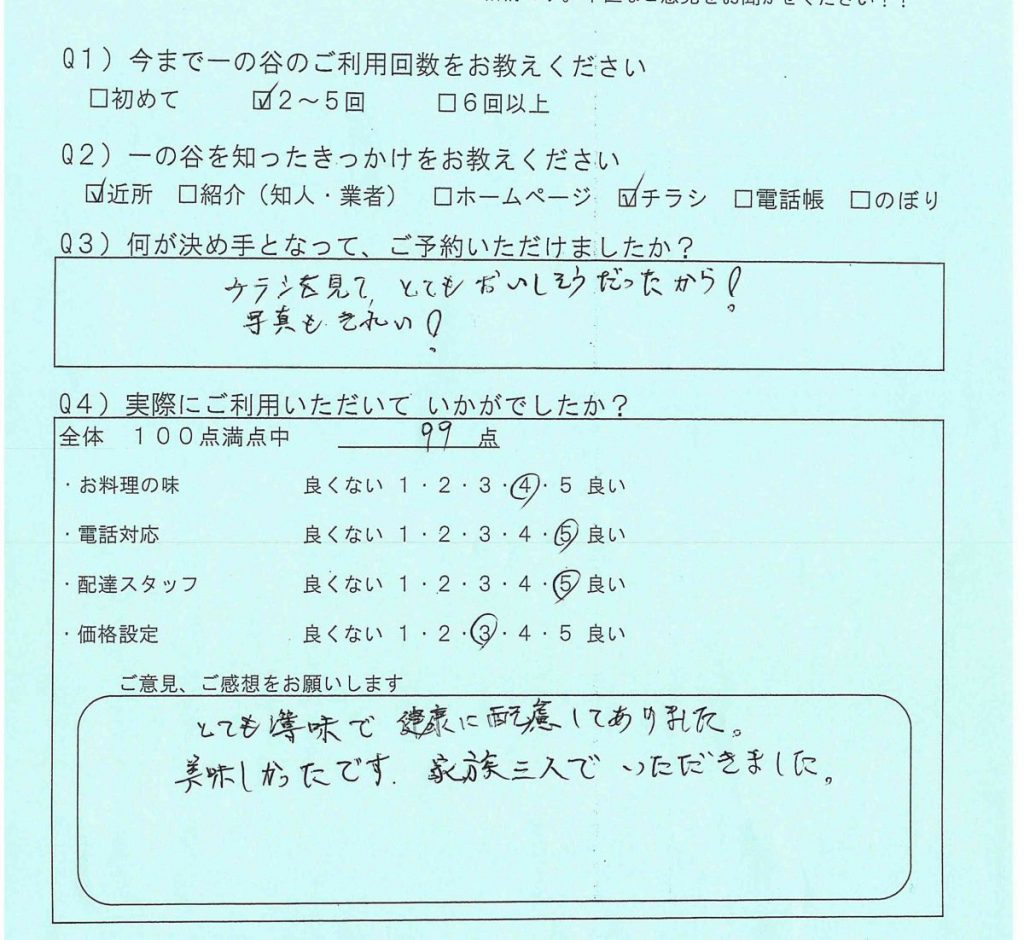 Q1）今まで一の谷のご利用回数をお教えください
□初めて ☑2～5回 □6回以上
Q2）一の谷を知ったきっかけをお教えください
☑近所 □紹介（知人・業者） □ホームページ ☑チラシ □電話帳 □のぼり
Q3）何が決め手となって、ご予約いただけましたか？
チラシを見て、とてもおいしそうだったから！
写真もきれい！
Q4）実際にご利用いただいて いかがでしたか？
全体 100点満点中 99 点
・お料理の味 良くない 1・2・3・④・5 良い
・電話対応 良くない 1・2・3・4・⑤ 良い
・配達スタッフ 良くない 1・2・3・4・⑤ 良い
・価格設定 良くない 1・2・③・4・5 良い
ご意見、ご感想をお願いします
とても薄味で 健康に配慮してありました。
美味しかったです。家族三人で いただきました。